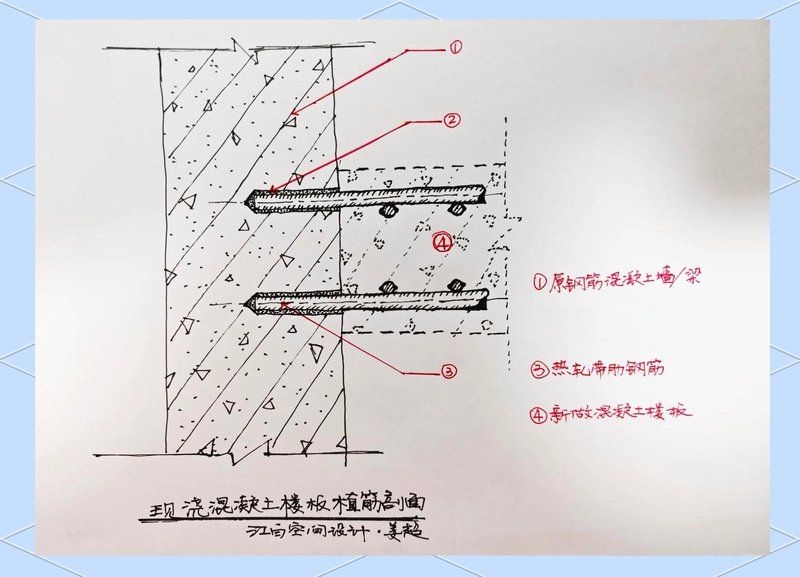 ①
②
④
③
①原钢筋混凝土墙/梁
③热轧带肋钢筋
④新做混凝土楼板
现浇混凝土楼板植筋剖面
江白空间设计·姜超